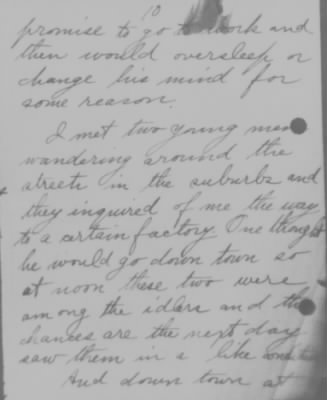 10
promise to go to work and
then would oversleep or
change his mind for
some reason.
I met two young men
wandering around the
streets in the suburbs and
they inquired of me the way
to a certain factory. One thought
he would go down town so
at noon these two were
among the idlers and the
chances are the next day
saw them in a like
And down town at